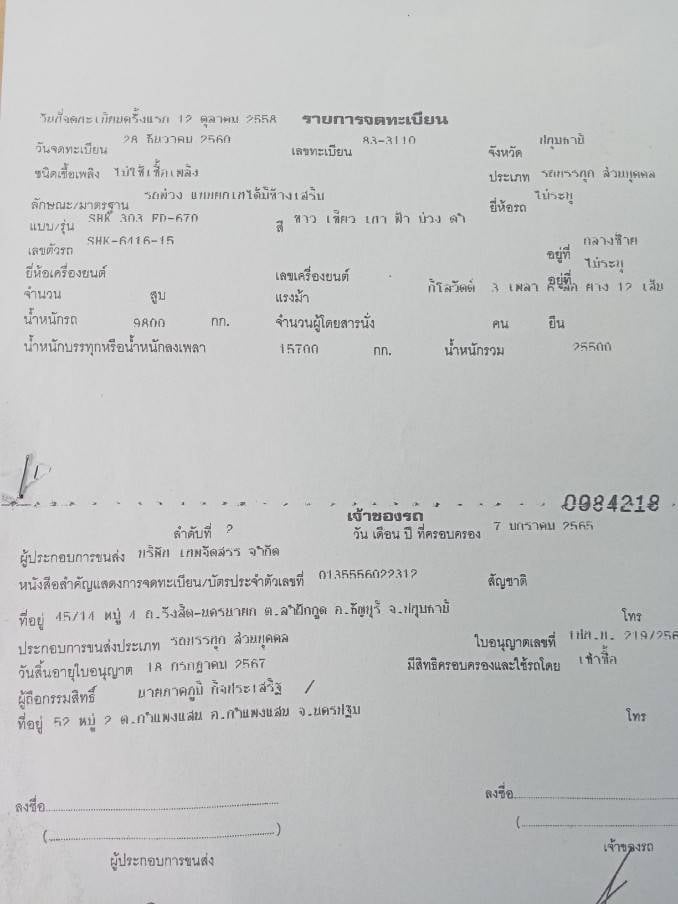 วันที่จดทะเบียนครั้งแรก 12 ตุลาคม 2558 รายการจดทะเบียน
วันจดทะเบียน 28 ธันวาคม 2560 เลขทะเบียน 83-3110 จังหวัด ปทุมธานี
ชนิดเชื้อเพลิง ไม่ใช้เชื้อเพลิง ประเภท รถบรรทุก ส่วนบุคคล
ลักษณะ/มาตรฐาน รถพ่วง แบบยกเทได้มีข้างเสริม ยี่ห้อรถ ไม่ระบุ
แบบ/รุ่น SHK 303 FD-670 สี ขาว เขียว เทา ฟ้า ม่วง ดำ
เลขตัวรถ SHK-6416-15 อยู่ที่ กลางซ้าย
ยี่ห้อเครื่องยนต์ เลขเครื่องยนต์ อยู่ที่ ไม่ระบุ
จำนวน สูบ แรงม้า กิโลวัตต์ 3 เพลา ล้อ ยาง 12 เส้น
น้ำหนักรถ 9800 กก. จำนวนผู้โดยสารนั่ง คน ยืน
น้ำหนักบรรทุกหรือน้ำหนักลงเพลา 15700 กก. น้ำหนักรวม 25500
0984218
เจ้าของรถ
ลำดับที่ 2 วัน เดือน ปี ที่ครอบครอง 7 มกราคม 2565
ผู้ประกอบการขนส่ง บริษัท เทพจัดสรร จำกัด
หนังสือสำคัญแสดงการจดทะเบียน/บัตรประจำตัวเลขที่ 0135556022312 สัญชาติ
ที่อยู่ 45/14 หมู่ 4 ถ.รังสิต-นครนายก ต.ลำผักกูด อ.ธัญบุรี จ.ปทุมธานี โทร
ประกอบการขนส่งประเภท รถบรรทุก ส่วนบุคคล ใบอนุญาตเลขที่ 219/256
วันสิ้นอายุใบอนุญาต 18 กรกฎาคม 2567 มีสิทธิครอบครองและใช้รถโดย เช่าซื้อ
ผู้ถือกรรมสิทธิ์ นายภาคภูมิ กิจประเสริฐ /
ที่อยู่ 52 หมู่ 2 ต.กำแพงแสน อ.กำแพงแสน จ.นครปฐม โทร
ลงชื่อ ลงชื่อ
( ) (
ผู้ประกอบการขนส่ง เจ้าของรถ